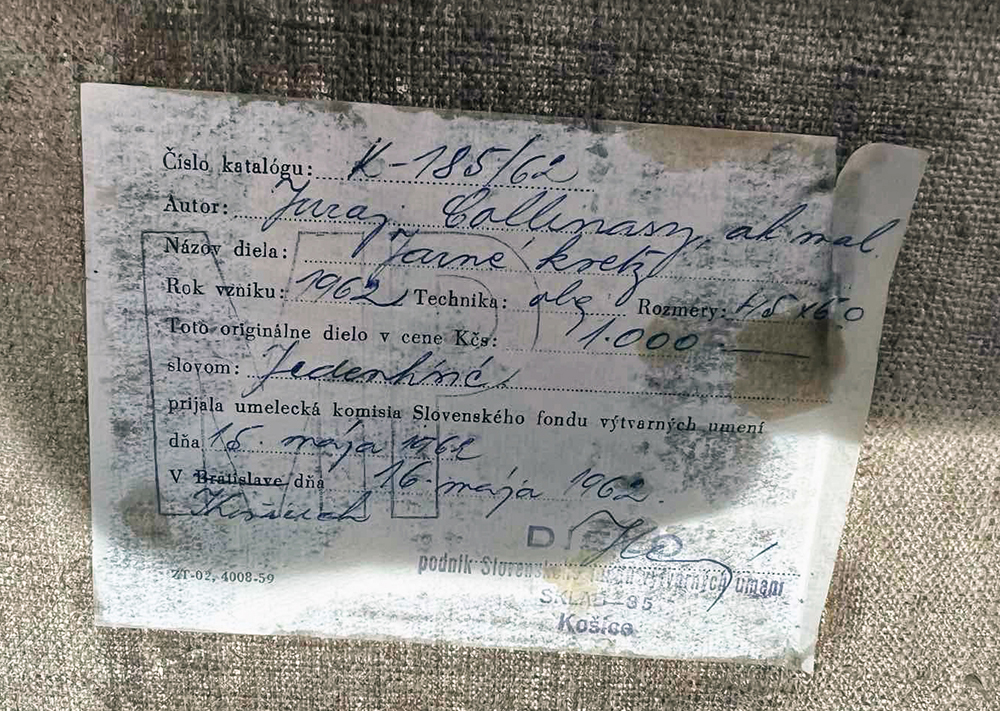 Číslo katalógu: K-185/62
Autor: Juraj Collinasy, ak mal.
Názov diela: Jarné kvety
Rok vzniku: 1962 Technika: olej Rozmery: 45x60
Toto originálne dielo v cene Kčs: 1.000
slovom: Jedentisíc
prijala umelecká komisia Slovenského fondu výtvarných umení
dňa 15. mája 1962
V Bratislave dňa 16. mája 1962.
Košiciach
podnik Slovenského fondu výtvarných umení
ZT-02, 4008-59
SKLAD-35
Košice